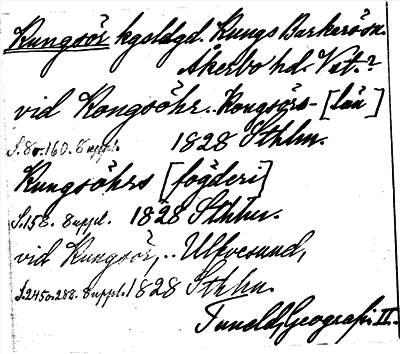 Kungsör kgsldgd. Kungs Barkarö sn.
Åkerbo hd. Vstm.?
vid Kongsöhr.. Kongsörs- [län]
S. 80. 160. 8 uppl. 1828 Sthlm.
Kungsöhrs [fögderi]
S. 158. 8 uppl. 1828 Sthlm.
vid Kungsör,.. Ulfvesund,
S. 245 o. 288. 8 uppl. 1828 Sthlm.
Tuneld, Geografi II.